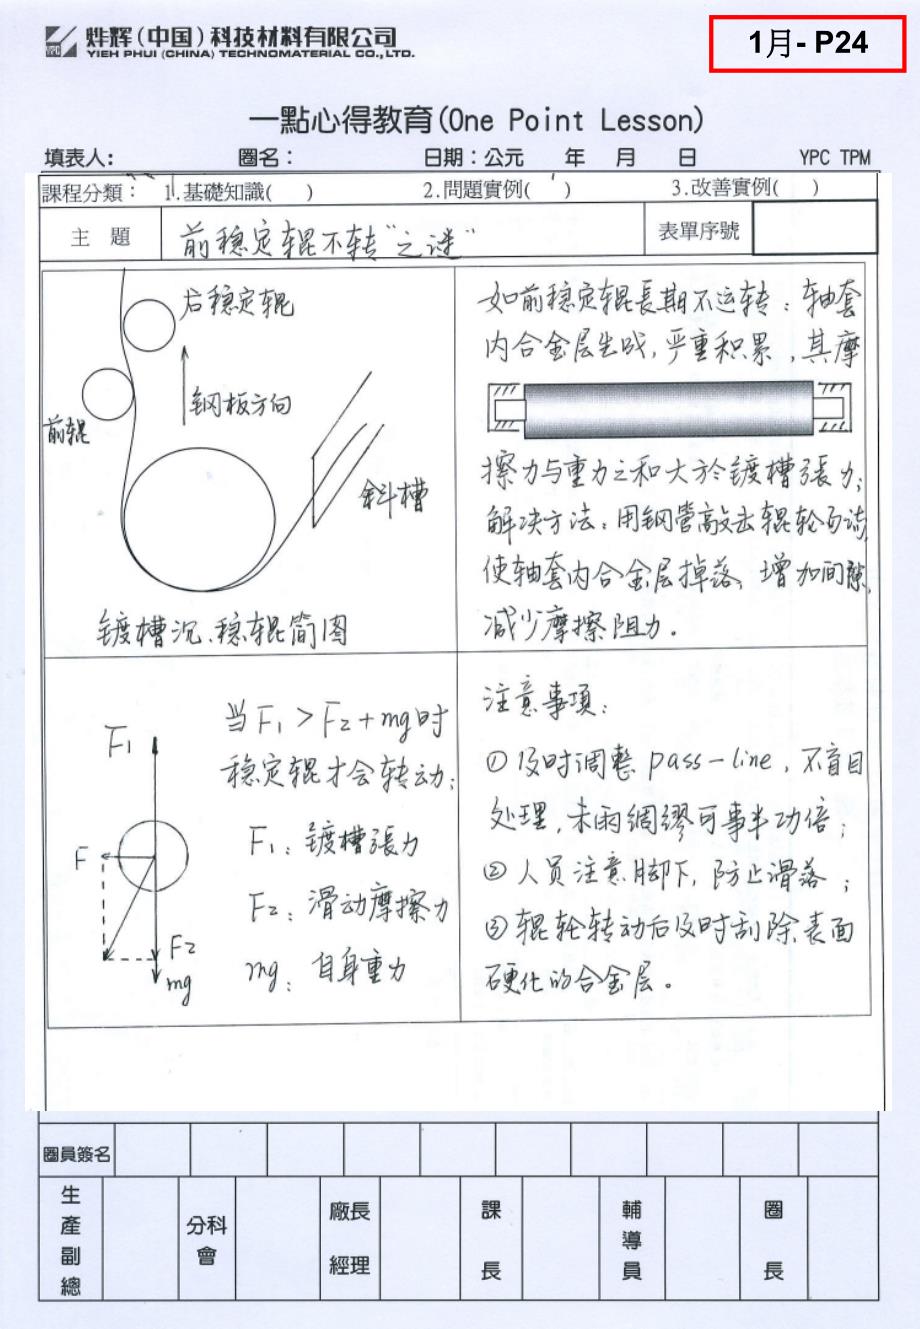 烨辉(中国)科技材料有限公司
YPC
YIEH PHUI (CHINA) TECHNOMATERIAL CO.,LTD.
1月- P24
一點心得教育(One Point Lesson)
填表人: 圈名: 日期:公元 年 月 日 YPC TPM
課程分類: 1.基礎知識( ) 2.問題實例( ) 3.改善實例( )
主 題 前稳定辊不转“之谜” 表單序號
后稳定辊
钢板方向
前辊
斜槽
镀槽沉、稳辊简图
如前稳定辊長期不运转:轴套
内合金层生成,严重积累,其摩
擦力与重力之和大於镀槽張力;
解决方法:用钢管敲击辊轮两端,
使轴套内合金层掉落、增加间隙,
减少摩擦阻力。
F1
F
F2
mg
当F1>F2+mg时
稳定辊才会转动;
F1:镀槽張力
F2:滑动摩擦力
mg:自身重力
注意事項:
①及时调整pass-line,不盲目
处理,未雨綢繆可事半功倍;
②人员注意脚下,防止滑落;
③辊轮转动后及时刮除表面
硬化的合金层。
圈員簽名
生產副總 分科會 廠長經理 課長 輔導員 圈長